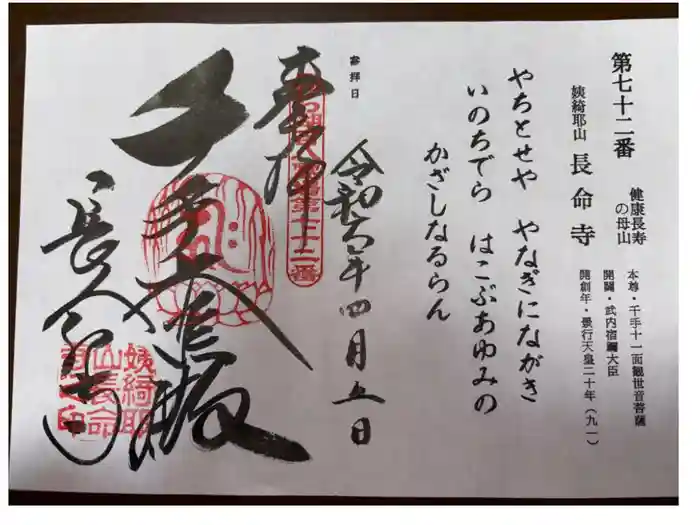 第七十二番
健康長寿
の母山
姨綺耶山 長命寺
本尊・千手十一面観世音菩薩
開闢・武内宿禰大臣
開創年・景行天皇二十年（九一）
やちとせや やなぎにながき
いのちでら はこぶあゆみの
かざしなるらん
参拝日
令和六年四月五日
奉拝
第七十二番
千手大悲殿
長命寺
姨綺耶
山長命
寺之印